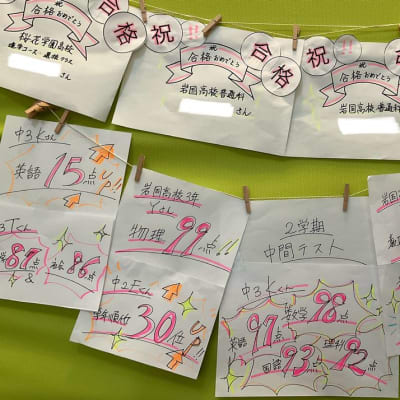 合格
祝
!!
合格
祝
!!
祝
合格おめでとう
桜花学園高校
さん
祝
合格おめでとう
岩国高校普通科
さん
祝
合格おめでとう
岩国高校普通科
中3Kさん
英語15点UP!!
87点
&
86点
岩国高校3年
Yさん
物理99点!!
中2Fさん
学年順位
30位UP!!
2学期
中間テスト
中3Kくん
英語97点
数学98点
国語93点
理科92点
岩国